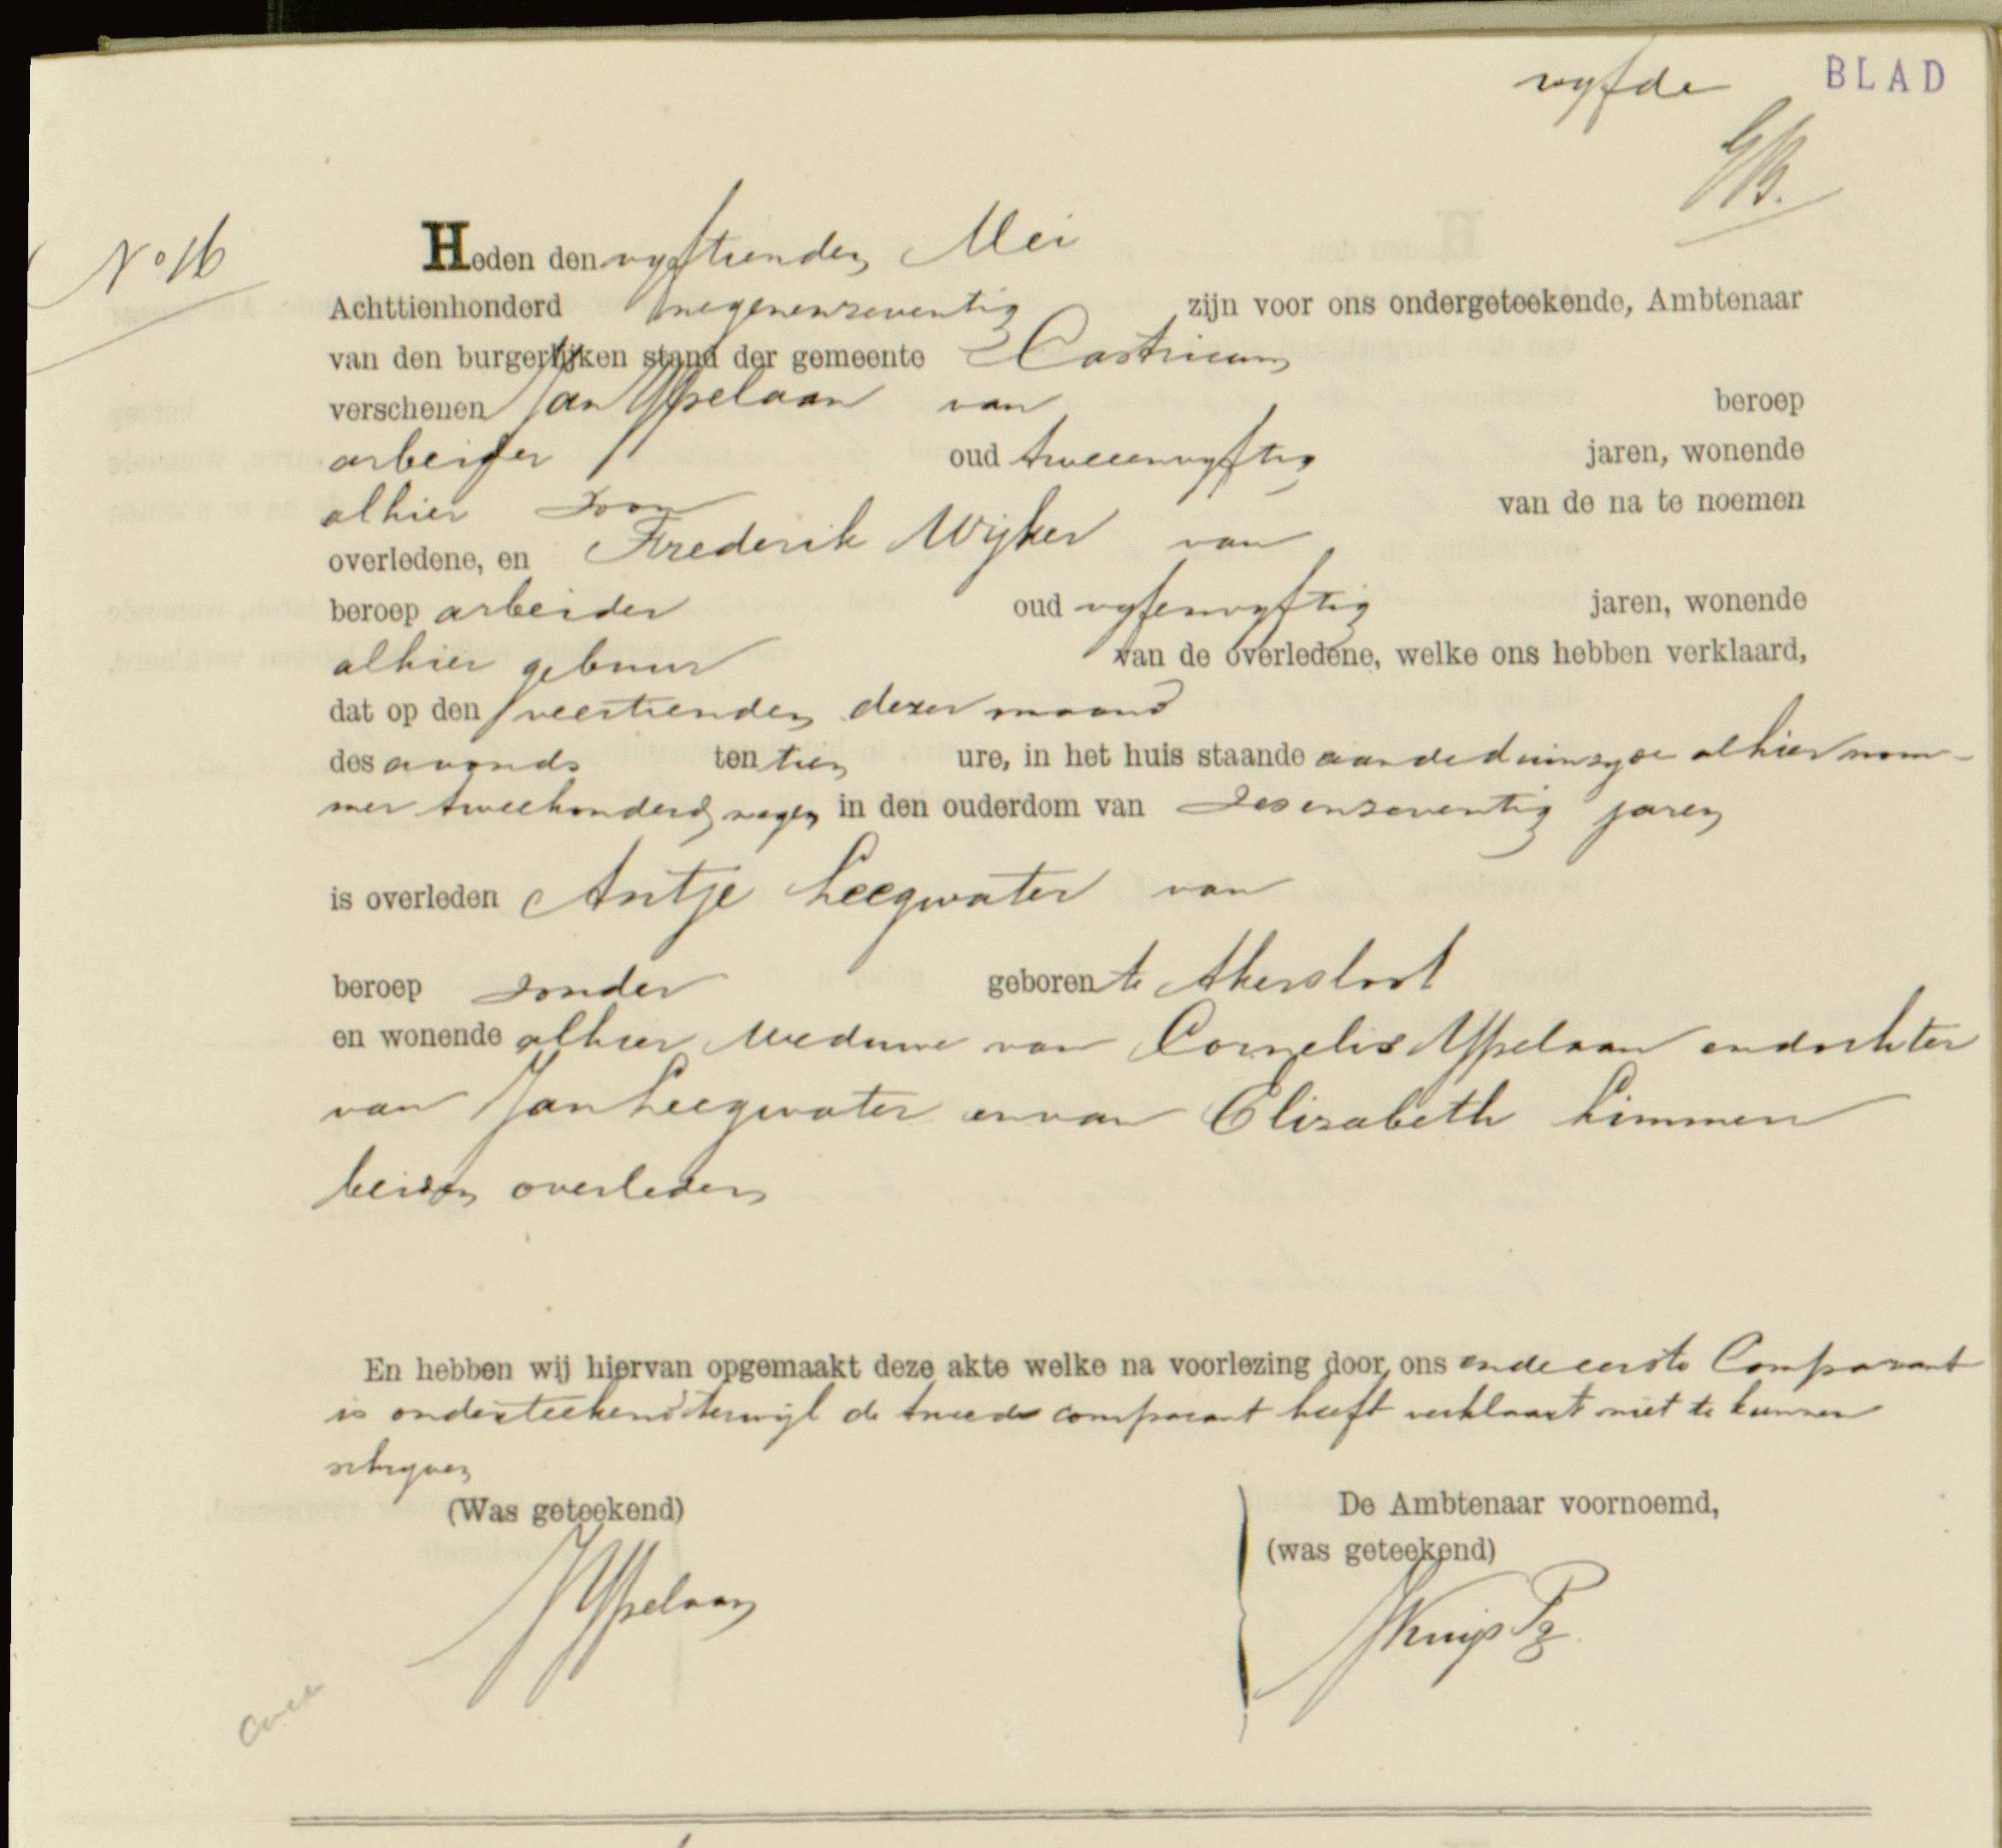 vyfde BLAD
No 16
Heden den vyftienden Mei
Achttienhonderd negenenzeventig zijn voor ons ondergeteekende, Ambtenaar
van den burgerlijken stand der gemeente Castricum
verschenen Jan Ypelaan van beroep
arbeider oud tweeenvyftig jaren, wonende
alhier Zoon van de na te noemen
overledene, en Frederik Wijker van
beroep arbeider oud vyfenvyftig jaren, wonende
alhier gebuur van de overledene, welke ons hebben verklaard,
dat op den veertienden dezer maand
des avonds ten tien ure, in het huis staande aan de duinzyde alhier num-
mer tweehonderd negen in den ouderdom van Zesenzeventig jaren
is overleden Antje Leegwater van
beroep zonder geboren te Akersloot
en wonende alhier Weduwe van Cornelis Ypelaan en dochter
van Jan Leegwater en van Elizabeth Limmen
beiden overleden
En hebben wij hiervan opgemaakt deze akte welke na voorlezing door ons en de eerste Comparant
is onderteekend terwyl de tweede comparant heeft verklaart niet te kunnen
schryven
(Was geteekend) De Ambtenaar voornoemd,
(was geteekend)
J Ypelaan JKuijs Pz